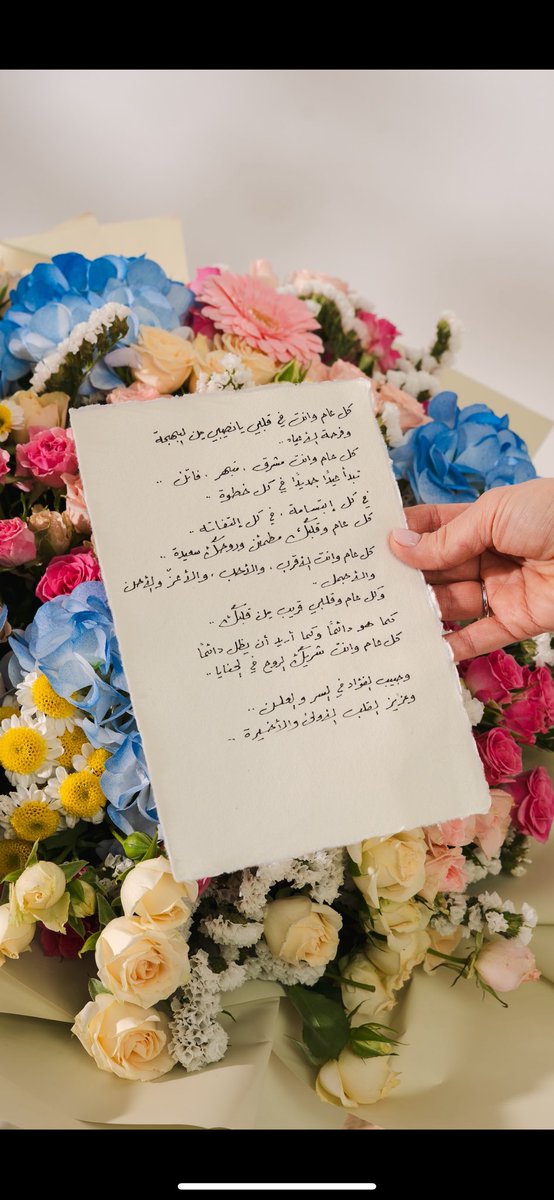 كل عام وانت في قلبي يا نصيبي من البهجة
وفرحة الأعياد ..
كل عام وانت مشرق ، مبهر ، فاتن ..
تبدأ عيدًا جديدًا في كل خطوة ..
في كل إبتسامة ، في كل إلتفاتة ..
كل عام وقلبك مطمئن وروحك سعيدة ..
كل عام وانت الأقرب ، والأحل ، والأعز والأجل
والأجمل ..
وكل عام وقلبي قريب من قلبك ..
كما هو دائمًا وكما أريد أن يظل دائمًا
كل عام وانت شريك الروح في الحنايا ..
وحبيب الفؤاد في السر والعلن ..
وعزيز القلب الأولى والأخيرة ..